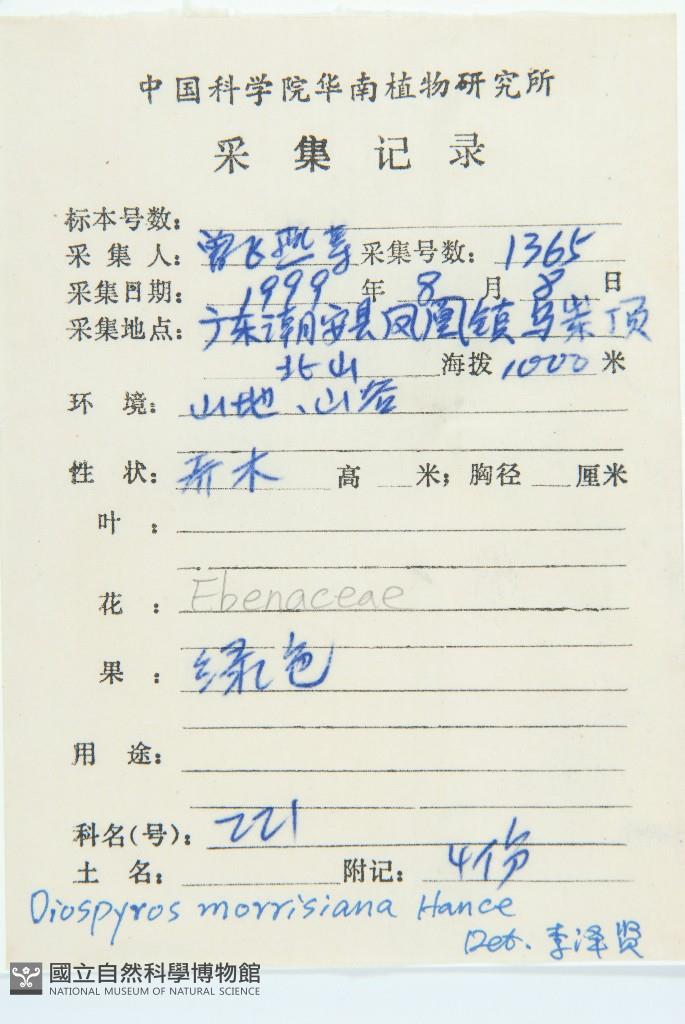 中国科学院华南植物研究所
采集记录
标本号数:
采集人: 曾飞燕等 采集号数: 1365
采集日期: 1999 年 8 月 8 日
采集地点: 广东潮安县凤凰镇乌岽顶
北山 海拨 1000 米
环境: 山地、山谷
性状: 乔木 高 米; 胸径 厘米
叶:
Ebenaceae
花:
果: 绿色
用途:
科名(号): 221
土名: 附记: 4份
Diospyros morrisiana Hance
Det. 李泽贤
國立自然科學博物館
NATIONAL MUSEUM OF NATURAL SCIENCE